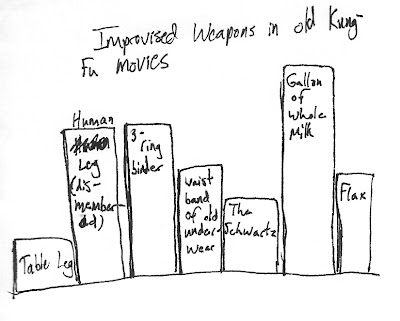 Improvised Weapons in old Kung-
Fu movies
Table Leg
Human
Leg
(dis-
member-
ed)
3-
ring
binder
waist
band
of old
under-
wear
The
Schwartz
Gallon
of
Whole
Milk
Flax